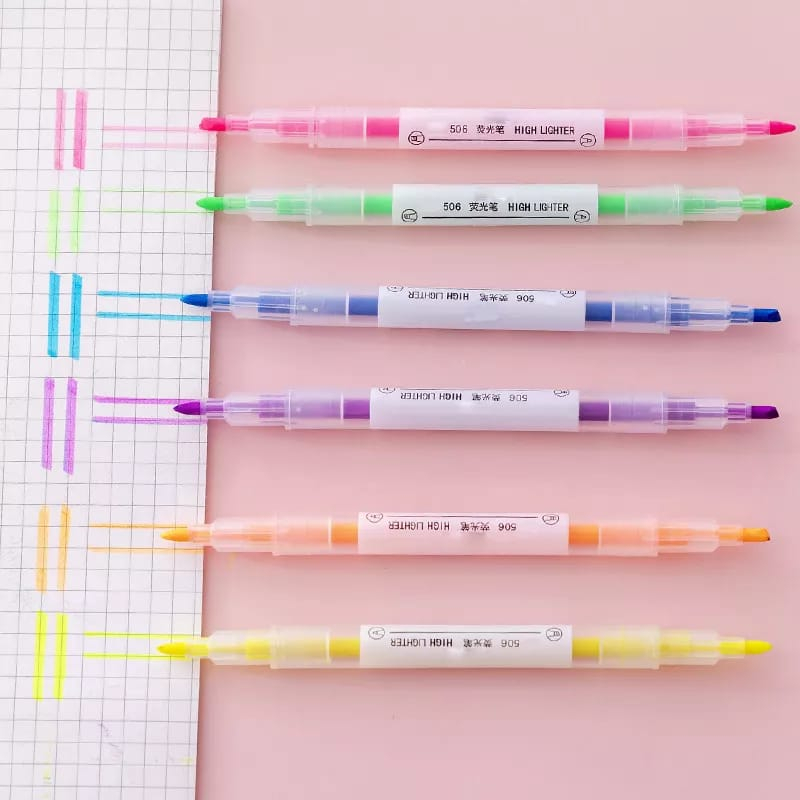 506 荧光笔 HIGH LIGHTER
B A
506 荧光笔 HIGH LIGHTER
B A
506 荧光笔 HIGH LIGHTER
506 荧光笔 HIGH LIGHTER
506 荧光笔 HIGH LIGHTER
B A
506 荧光笔 HIGH LIGHTER
B A